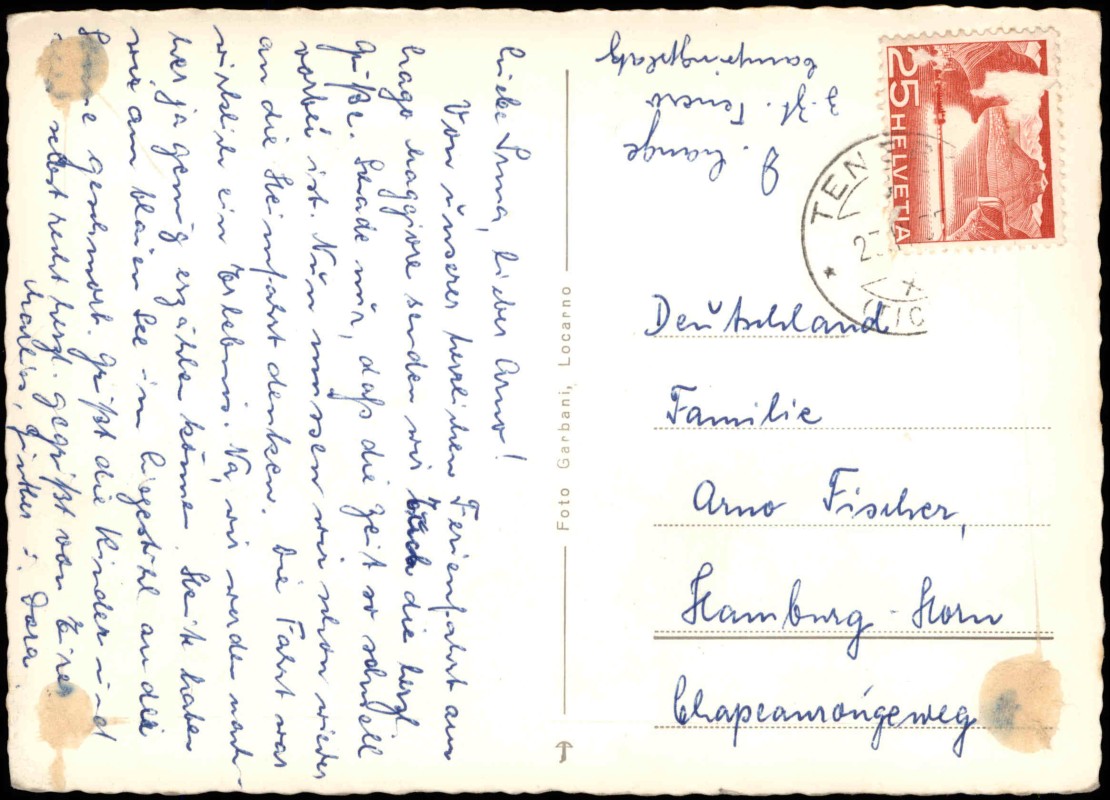 Liebe Irma, lieber Arno!
Von unserer herrlichen Ferienfahrt am
Lago Maggiore senden wir Euch die herzl.
Grüße. Schade nur, daß die Zeit so schnell
vorbei ist. Nun müssen wir schon wieder
an die Heimfahrt denken. Die Fahrt war
wirklich ein Erlebnis. Na, wir werden nach-
her ja genug erzählen können. Heute haben
wir am blauen See im Liegestuhl an der
Sonne geschmort. Grüßt die Kinder und
selbst recht herzl. gegrüßt von Eurer
Dora.
Foto Garbani, Locarno
G. Lange
z. Zt. Tenero
Campingplatz
25 HELVETIA
TEN
(TIC
Deutschland
Familie
Arno Fischer,
Hamburg-Horn
Chapeaurougeweg